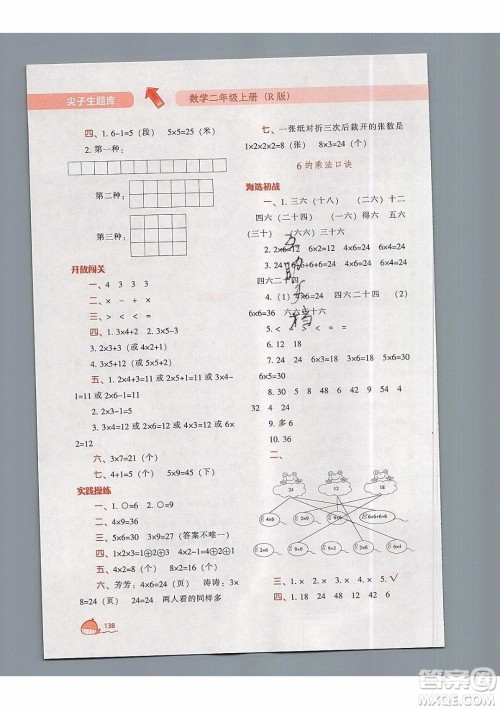 尖子生题库
数学二年级上册（R版）
四、1. 6-1=5（段） 5×5=25（米）
2. 第一种：
第二种：
第三种：
开放闯关
一、4 3 3 3
二、× - + ×
三、> < = =
四、1. 3×4+2 2. 3×5-1
3. 2×3+2 4. 5×5+5
五、1. 2×4+3=11 或 2×3+5=11 或 3×4-
1=11 或 2×6-1=11
2. 2×3-1=5
3. 3×4=12 或 2×6=12 或 4×3=12 或 6×
2=12
六、3×7=21（个）
七、4+1=5（种） 5×9=45（下）
实践操练
一、1. ○=6 2. ○=9
二、4×9=36
三、5×6=30 3×9=27（答案不唯一）
四、1×2×3=1⊕2⊕3
五、4×2=8（个） 8×2=16（个）
六、芳芳：4×6=24（页） 涛涛：3×
8=24（页） 两人看的同样多
138
七、一张纸对折三次后裁开的张数是
1×2×2×2=8（张） 3×8=24（个）
6的乘法口诀
海选初战
一、1. 三六（十八） （二六）十二
四六（二十四） （一六）得六 五六
（三十） （六六）三十六
2. 2×6=12 6×2=12 4×6=24 6×4=24
3. 24 6+6+6+6=24 4×6=24 6×4=24
四六二十四
4.（1）×6=24 四六二十四 （2）
6×6=36 六六三十六
5. < < = =
6. 12 18
7. 3×6=18 6×6=36 4×6=24
6×5=30
8. 30 5 24 36 2 6
9. 多6
10. 36
二、
24 12 18
4×6 3×6 2×6 6+6+6
2×6 6×4 6×3 6×2
三、1. × 2. × 3. × 4. × 5. ✓
四、1. 18 24 48 2. 24 12 6
答案圈
MXQE.COM